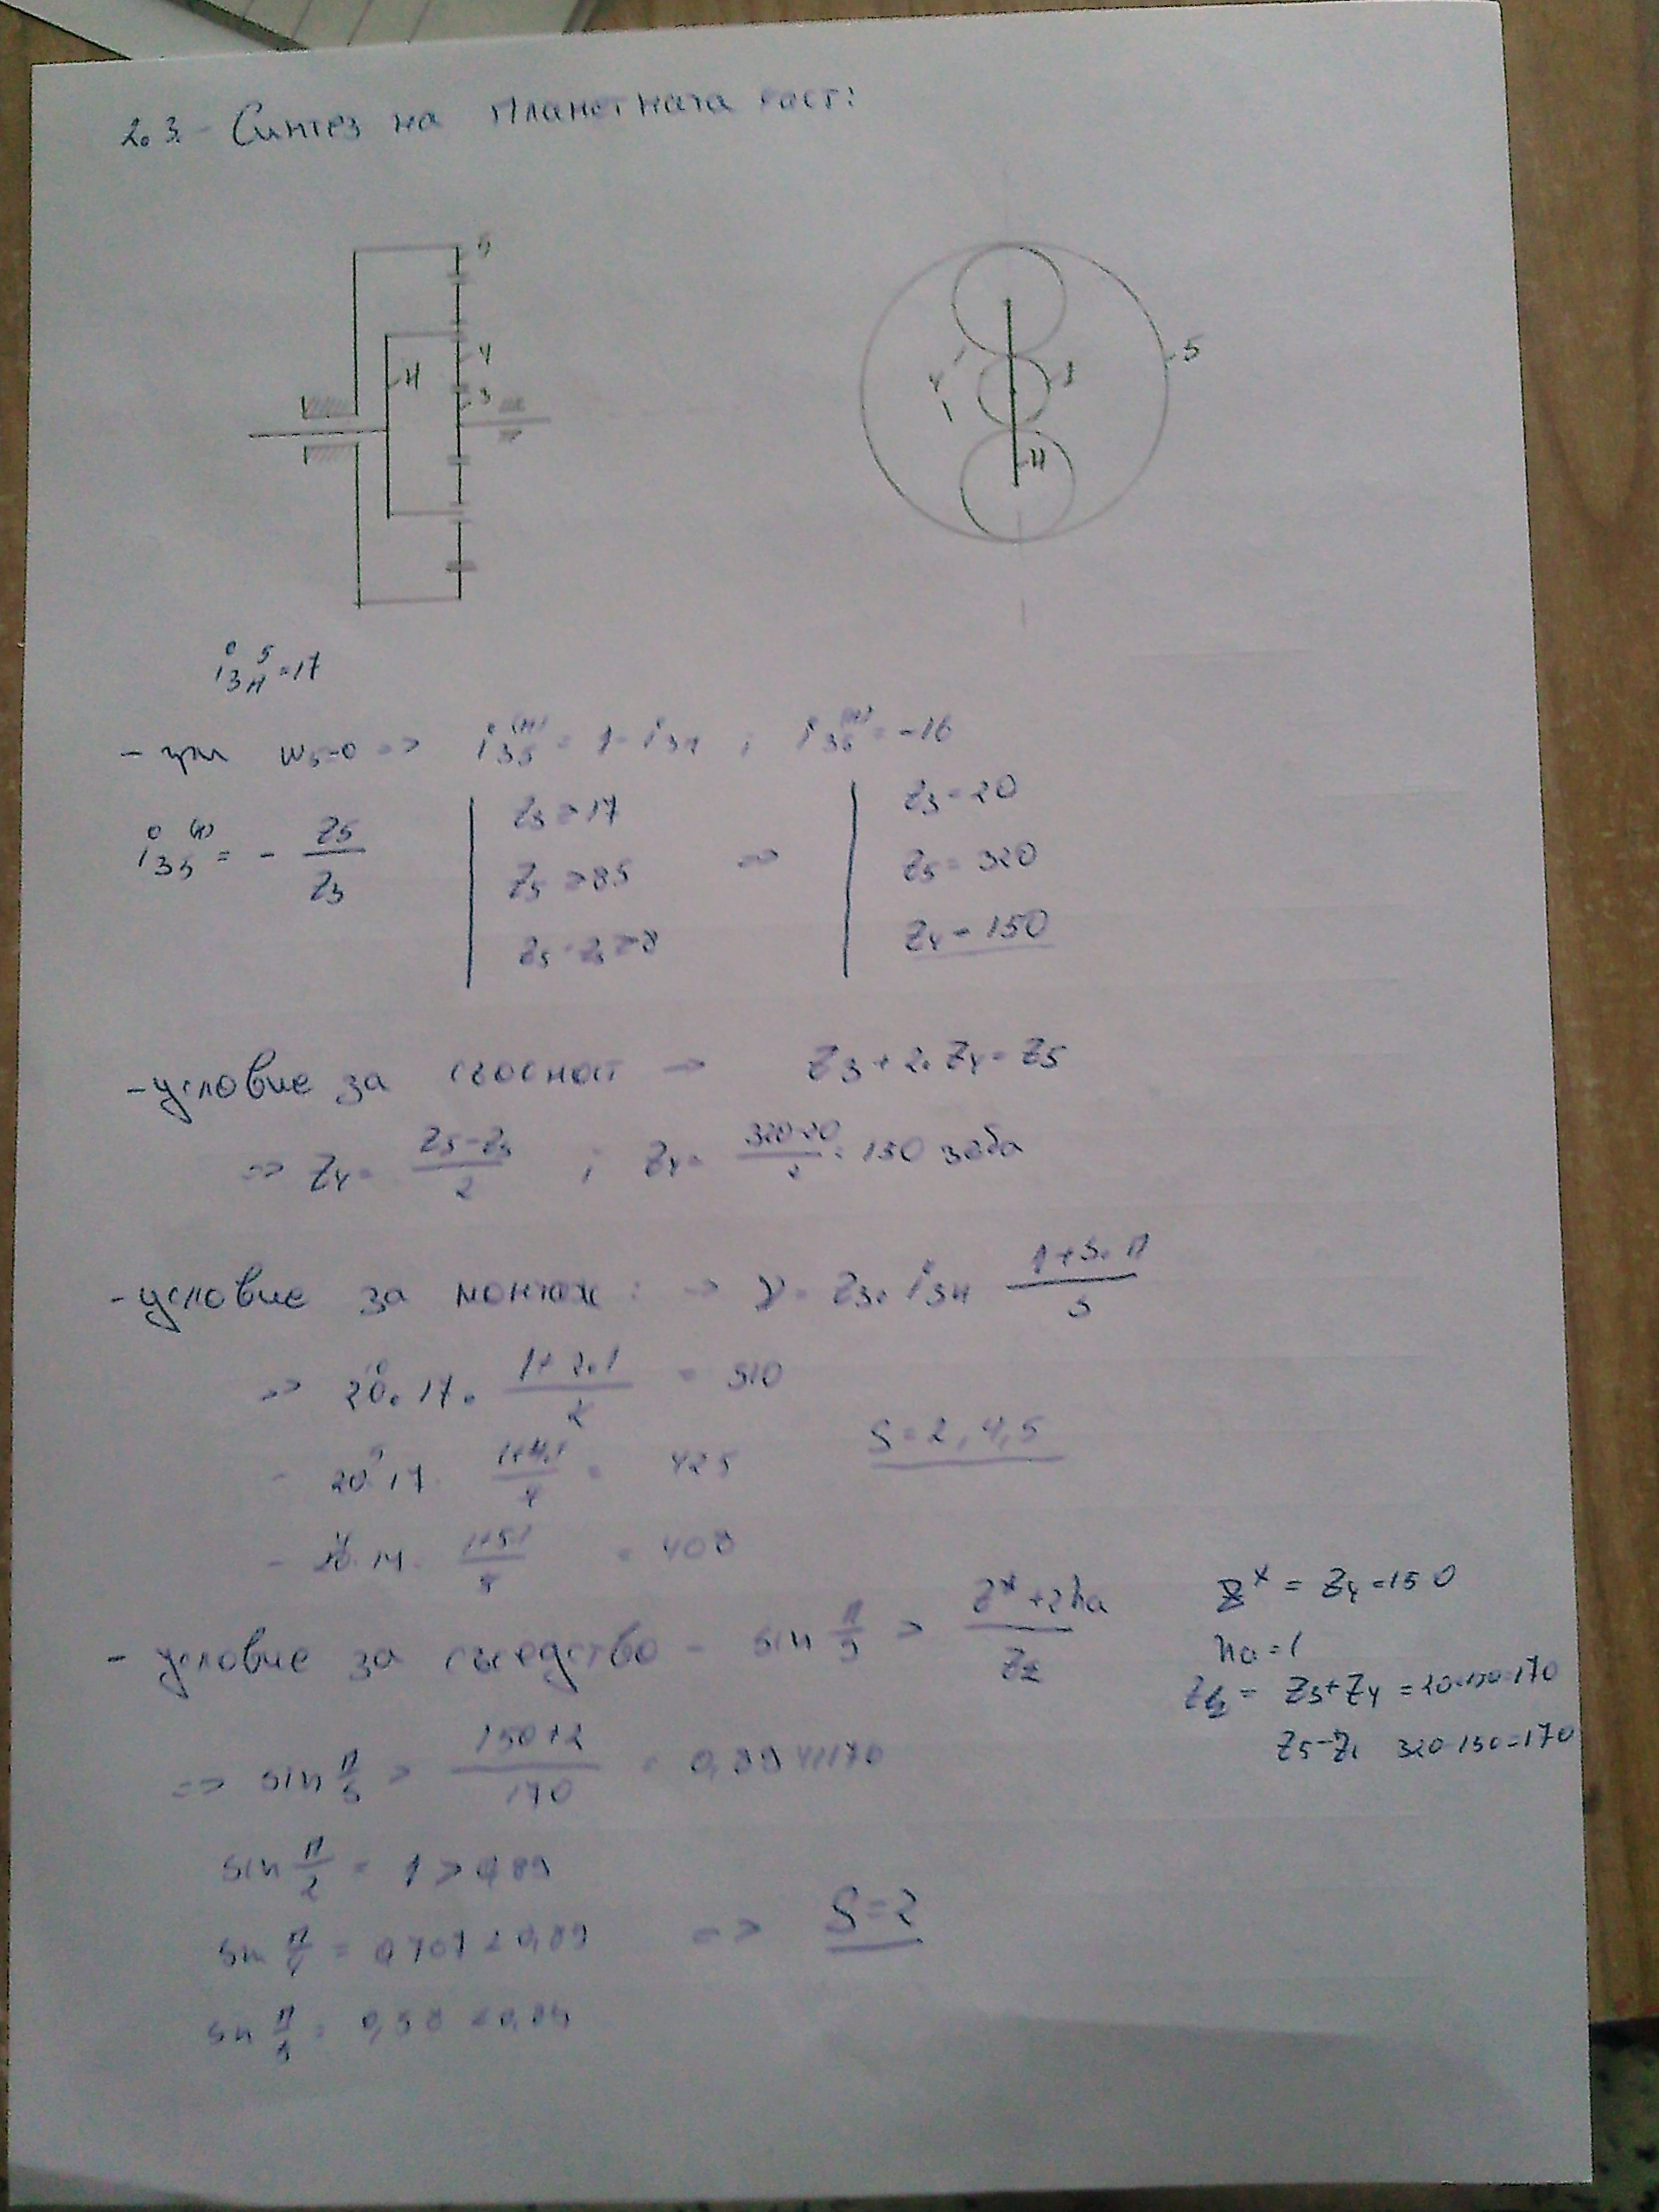 2.3. Синтез на планетната част:
5
4
H
3
5
4
3
H
i3H = 17
- при ω5=0 => i35(H) = 1 - i3H ; i35(H) = -16
i35(H) = - Z5/Z3
Z3 ≥ 17
Z5 ≥ 85
Z5 - Z3 ≥ 8
=>
Z3 = 20
Z5 = 320
Z4 = 150
- условие за съосност -> Z3 + 2.Z4 = Z5
=> Z4 = (Z5-Z3)/2 ; Z4 = (320-20)/2 = 150 зъба
- условие за монтаж : -> γ = Z3. i3H (1+S.П)/S
=> 20. 17. (1+2.1)/2 = 510
- 20 17. (1+4.1)/4 = 425
S = 2, 4, 5
- 20. 17. (1+5.1)/5 = 408
- условие за съседство - sin П/S > (Z* + 2ha)/ZΣ
Z* = Z4 = 150
ha = 1
ZΣ = Z3+Z4 = 20+150=170
Z5-Z4 320-150=170
=> sin П/S > (150+2)/170 = 0,8941170
sin П/2 = 1 > 0,89
sin П/4 = 0,707 < 0,89
=> S = 2
sin П/5 = 0,58 < 0,89